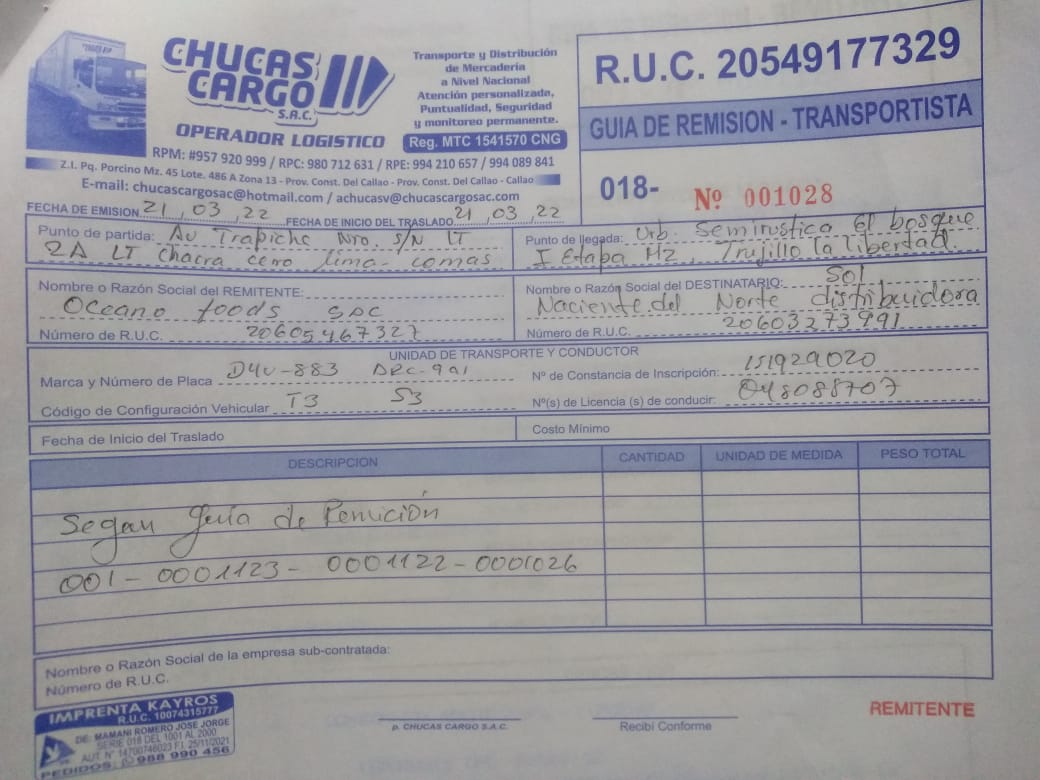 CHUCAS CARGO S.A.C.
OPERADOR LOGISTICO
Transporte y Distribución
de Mercadería
a Nivel Nacional
Atención personalizada,
Puntualidad, Seguridad
y monitoreo permanente.
Reg. MTC 1541570 CNG
RPM: #957 920 999 / RPC: 980 712 631 / RPE: 994 210 657 / 994 089 841
Z.I. Pq. Porcino Mz. 45 Lote. 486 A Zona 13 - Prov. Const. Del Callao - Prov. Const. Del Callao - Callao
E-mail: chucascargosac@hotmail.com / achucasv@chucascargosac.com
R.U.C. 20549177329
GUIA DE REMISION - TRANSPORTISTA
018- Nº 001028
FECHA DE EMISION 21, 03, 22 FECHA DE INICIO DEL TRASLADO 21, 03, 22
Punto de partida: Av Trapiche Nro. S/N LT
2A LT Chacra cerro lima-comas
Punto de llegada: Urb. Semirustica El bosque
I Etapa Mz, Trujillo la libertad.
Nombre o Razón Social del REMITENTE:
Oceano foods SAC
Número de R.U.C. 20605467327
Nombre o Razón Social del DESTINATARIO: Sol
Naciente del Norte distribuidora
Número de R.U.C. 20603273991
UNIDAD DE TRANSPORTE Y CONDUCTOR
Marca y Número de Placa D4U-883
Nº de Constancia de Inscripción: 151929020
Código de Configuración Vehicular T3 S3
Nº(s) de Licencia (s) de conducir: 048088707
Fecha de Inicio del Traslado
Costo Mínimo
DESCRIPCION CANTIDAD UNIDAD DE MEDIDA PESO TOTAL
Segun guía de Remición
001- 0001123- 0001122-0001026
Nombre o Razón Social de la empresa sub-contratada:
Número de R.U.C.
IMPRENTA KAYROS
R.U.C. 10074315777
DE: MAMANI ROMERO JOSE JORGE
SERIE 018 DEL 1001 AL 2000
AUT. Nº 14700746023 F.I. 25/11/2021
PEDIDOS: 988 990 456
p. CHUCAS CARGO S.A.C.
Recibí Conforme
REMITENTE